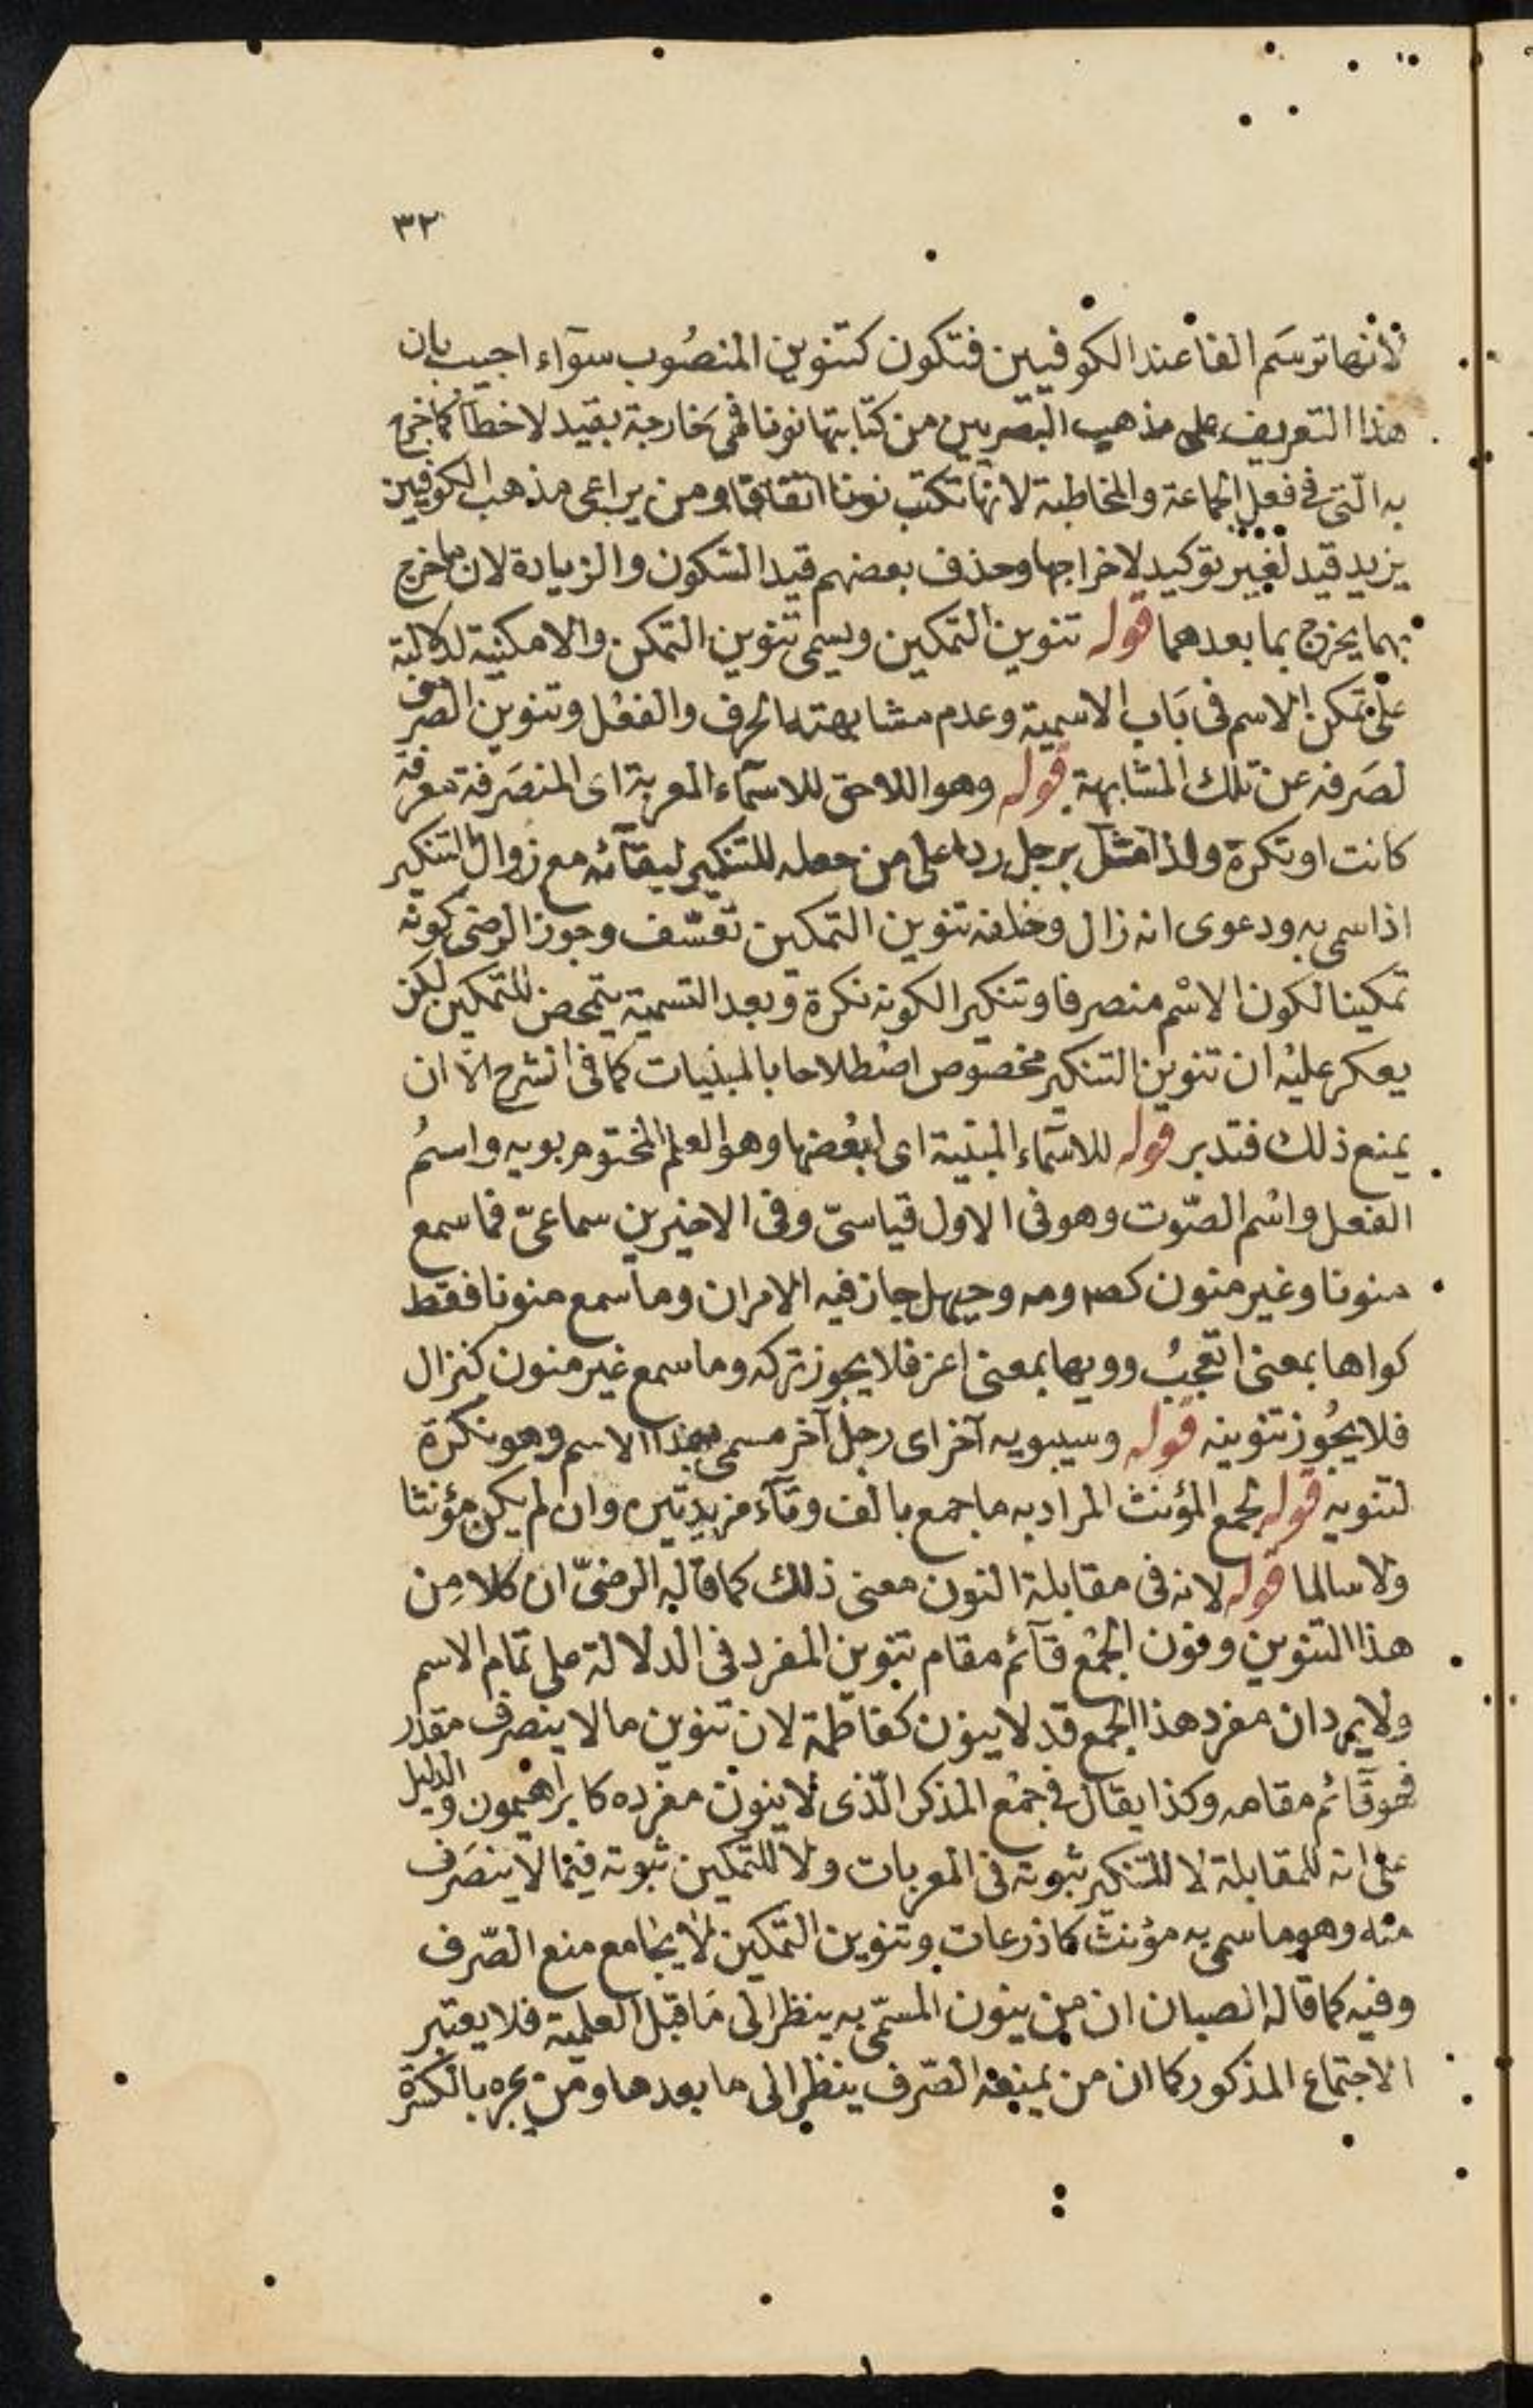 ٣٢
لانها ترسم الفا عند الكوفيين فتكون كتنوين المنصوب سوآء اجيب بان
هذا التعريف على مذهب البصريين من كتابتها نونا فهى خارجة بقيد لا خطا كما خرج
به التى فى فعل الجماعة والمخاطبة لانها تكتب نونا اتفاقا ومن يراعى مذهب الكوفيين
يزيد قيد لغير توكيد لاخراجها وحذف بعضهم قيد السكون والزيادة لان ما خرج
بهما يخرج بما بعدهما قوله تنوين التمكين ويسمى تنوين التمكن والامكنية لدلالته
على تمكن الاسم فى باب الاسمية وعدم مشابهته الحرف والفعل وتنوين الصرف
لصرفه عن تلك المشابهة قوله وهو اللاحق للاسمآء المعربة اى المنصرفة معرفة
كانت او نكرة ولذا مثل برجل ردا على من جعله للتنكير لبقآئه مع زوال التنكير
اذا سمى به ودعوى انه زال وخلفه تنوين التمكين تعسّف وجوز الرضى كونه
تمكينا لكون الاسم منصرفا وتنكيرا لكونه نكرة وبعد التسمية يتمحض للتمكين لكن
يعكر عليه ان تنوين التنكير مخصوص اصطلاحا بالمبنيات كما فى الشرح الا ان
يمنع ذلك فتدبر قوله للاسمآء المبنية اى لبعضها وهو العلم المختوم بويه واسم
الفعل واسم الصّوت وهو فى الاول قياسىّ وفى الاخيرين سماعىّ فما سمع
منونا وغير منون كصه ومه وحيهل جاز فيه الامران وما سمع منونا فقط
كواها بمعنى اتعجب وويها بمعنى اعز فلا يجوز تركه وما سمع غير منون كنزال
فلا يجوز تنوينه قوله وسيبويه آخر اى رجل آخر مسمى بهذا الاسم وهو نكرة
لتنويه قوله لجمع المؤنث المراد به ما جمع بالف وتآء مزيدتين وان لم يكن مؤنثا
ولا سالما قوله لانه فى مقابلة النون معنى ذلك كما قاله الرضىّ ان كلا من
هذا التنوين ونون الجمع قآئم مقام تنوين المفرد فى الدلالة على تمام الاسم
ولا يرد ان مفرد هذا الجمع قد لا ينون كفاطمة لان تنوين ما لا ينصرف مقدر
فهو قآئم مقامه وكذا يقال فى جمع المذكر الّذى لا ينون مفرده كابراهيمون والدليل
على انه للمقابلة لا للتنكير ثبوته فى المعربات ولا للتمكين ثبوته فيما لا ينصرف
منه وهو ما سمى به مؤنث كاذرعات وتنوين التمكين لا يجامع منع الصّرف
وفيه كما قاله الصبان ان من ينون المسمّى به ينظر الى ما قبل العلمية فلا يعتبر
الاجتماع المذكور كما ان من يمنعه الصّرف ينظر الى ما بعدها ومن يجره بالكسرة